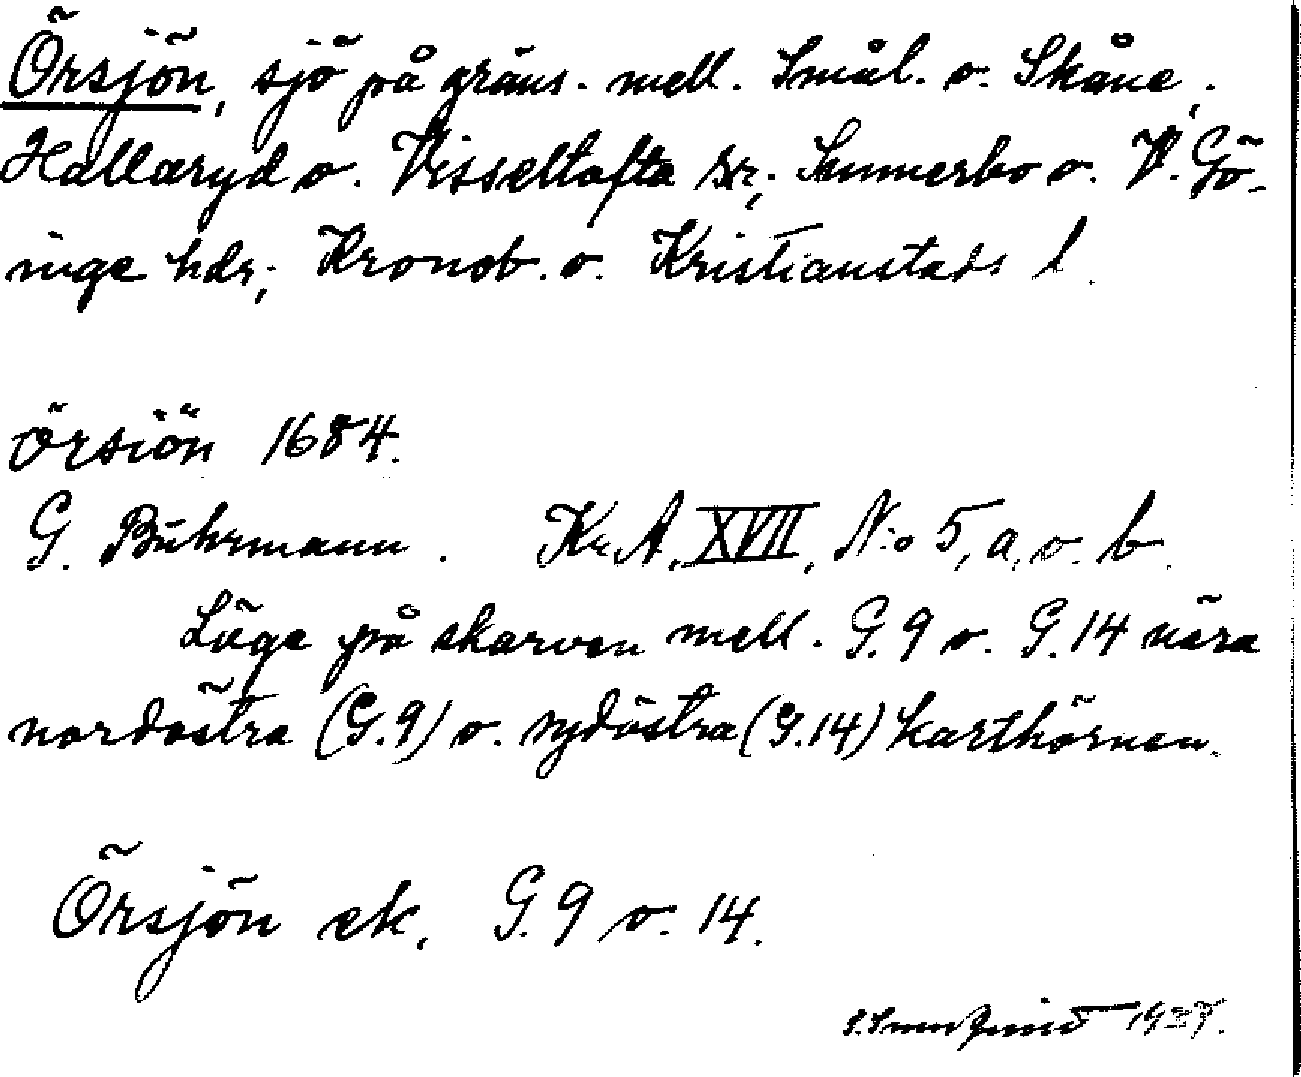 Örsjön, sjö på gräns. mell. Smål. o. Skåne,
Hallaryd o. Visseltofta snr; Sunnerbo o. V. Gö-
inge hdr; Kronob. o. Kristianstads l.
örsiön 1684.
G. Buhrmann. Kr. A. XVII, N:o 5, a. o. b.
Läge på skarven mell. G. 9 o. G. 14 nära
nordöstra (G. 9) o. sydöstra (G. 14) karthörnen.
Örsjön ek. G. 9 o. 14.
1937.